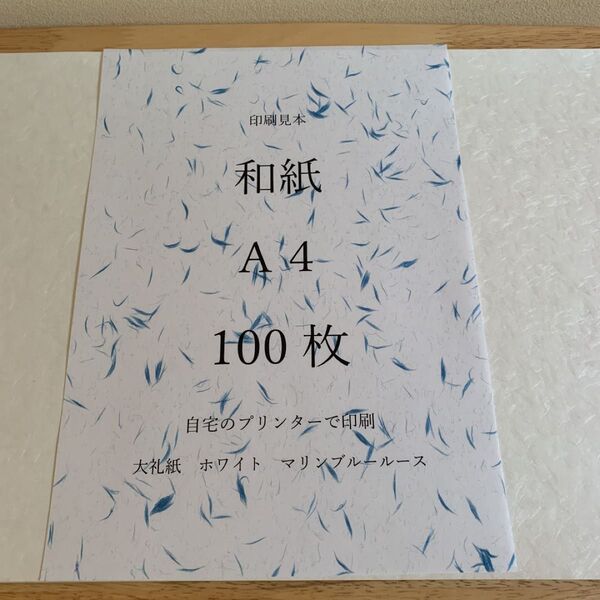 印刷見本
和紙
A 4
100 枚
自宅のプリンターで印刷
大礼紙　ホワイト　マリンブルールース